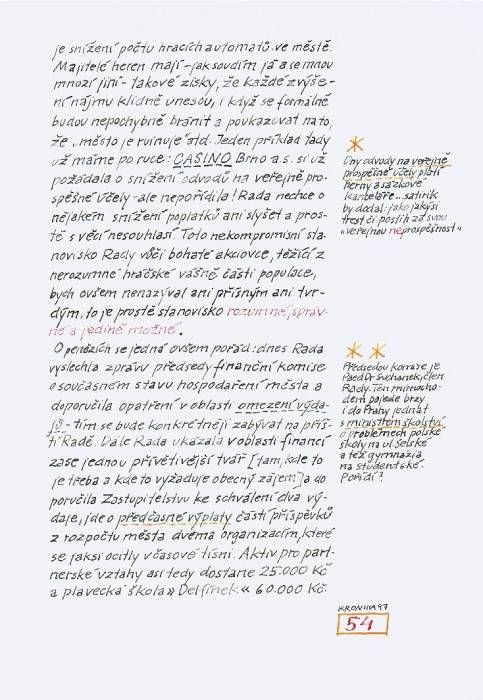 je snížení počtu hracích automatů ve městě.
Majitelé heren mají – jak soudím já a se mnou
mnozí jiní – takové zisky, že každé zvýše-
ní nájmu klidně unesou, i když se formálně
budou nepochybně bránit a poukazovat na to,
že „město je ruinuje" atd. Jeden příklad tady
už máme po ruce: CASINO Brno a.s. si už
požádala o snížení odvodů na veřejně pro-
spěšné účely – ale nepořídila! Rada nechce o
nějakém snížení poplatků ani slyšet a pros-
tě s věcí nesouhlasí. Toto nekompromisní sta-
novisko Rady vůči bohaté akciovce, těžící z
nerozumné hráčské vášně části populace,
bych ovšem nenazýval ani přísným ani tvr-
dým, to je prostě stanovisko rozumné, správ-
né a jedině možné.
O penězích se jedná ovšem pořád: dnes Rada
vyslechla zprávu předsedy finanční komise
o současném stavu hospodaření města a
doporučila opatření v oblasti omezení výda-
jů – tím se bude konkrétněji zabývat na příš-
tí Radě. Dále Rada ukázala v oblasti financí
zase jednou přívětivější tvář [tam, kde to
je třeba a kde to vyžaduje obecný zájem] a do-
poručila Zastupitelstvu ke schválení dva vý-
daje, jde o předčasné výplaty částí příspěvků
z rozpočtu města dvěma organizacím, které
se jaksi ocitly v časové tísni. Aktiv pro part-
nerské vztahy asi tedy dostane 25.000 Kč
a plavecká škola » Delfínek « 60.000 Kč.
*
Ony odvody na veřejně
prospěšné účely platí
herny a sázkové
kanceláře... satirik
by dodal: jako jakýsi
trest či postih za svou
»veřejnou neprospěšnost«
* *
Předsedou komise je
PaedDr Suchánek, člen
Rady. Ten mimocho-
dem pojede brzy
i do Prahy jednat
s ministrem školství
o problémech polské
školy na ul. Selské
a též gymnázia
na studentské.
Pořídí?
KRONIKA 97
54